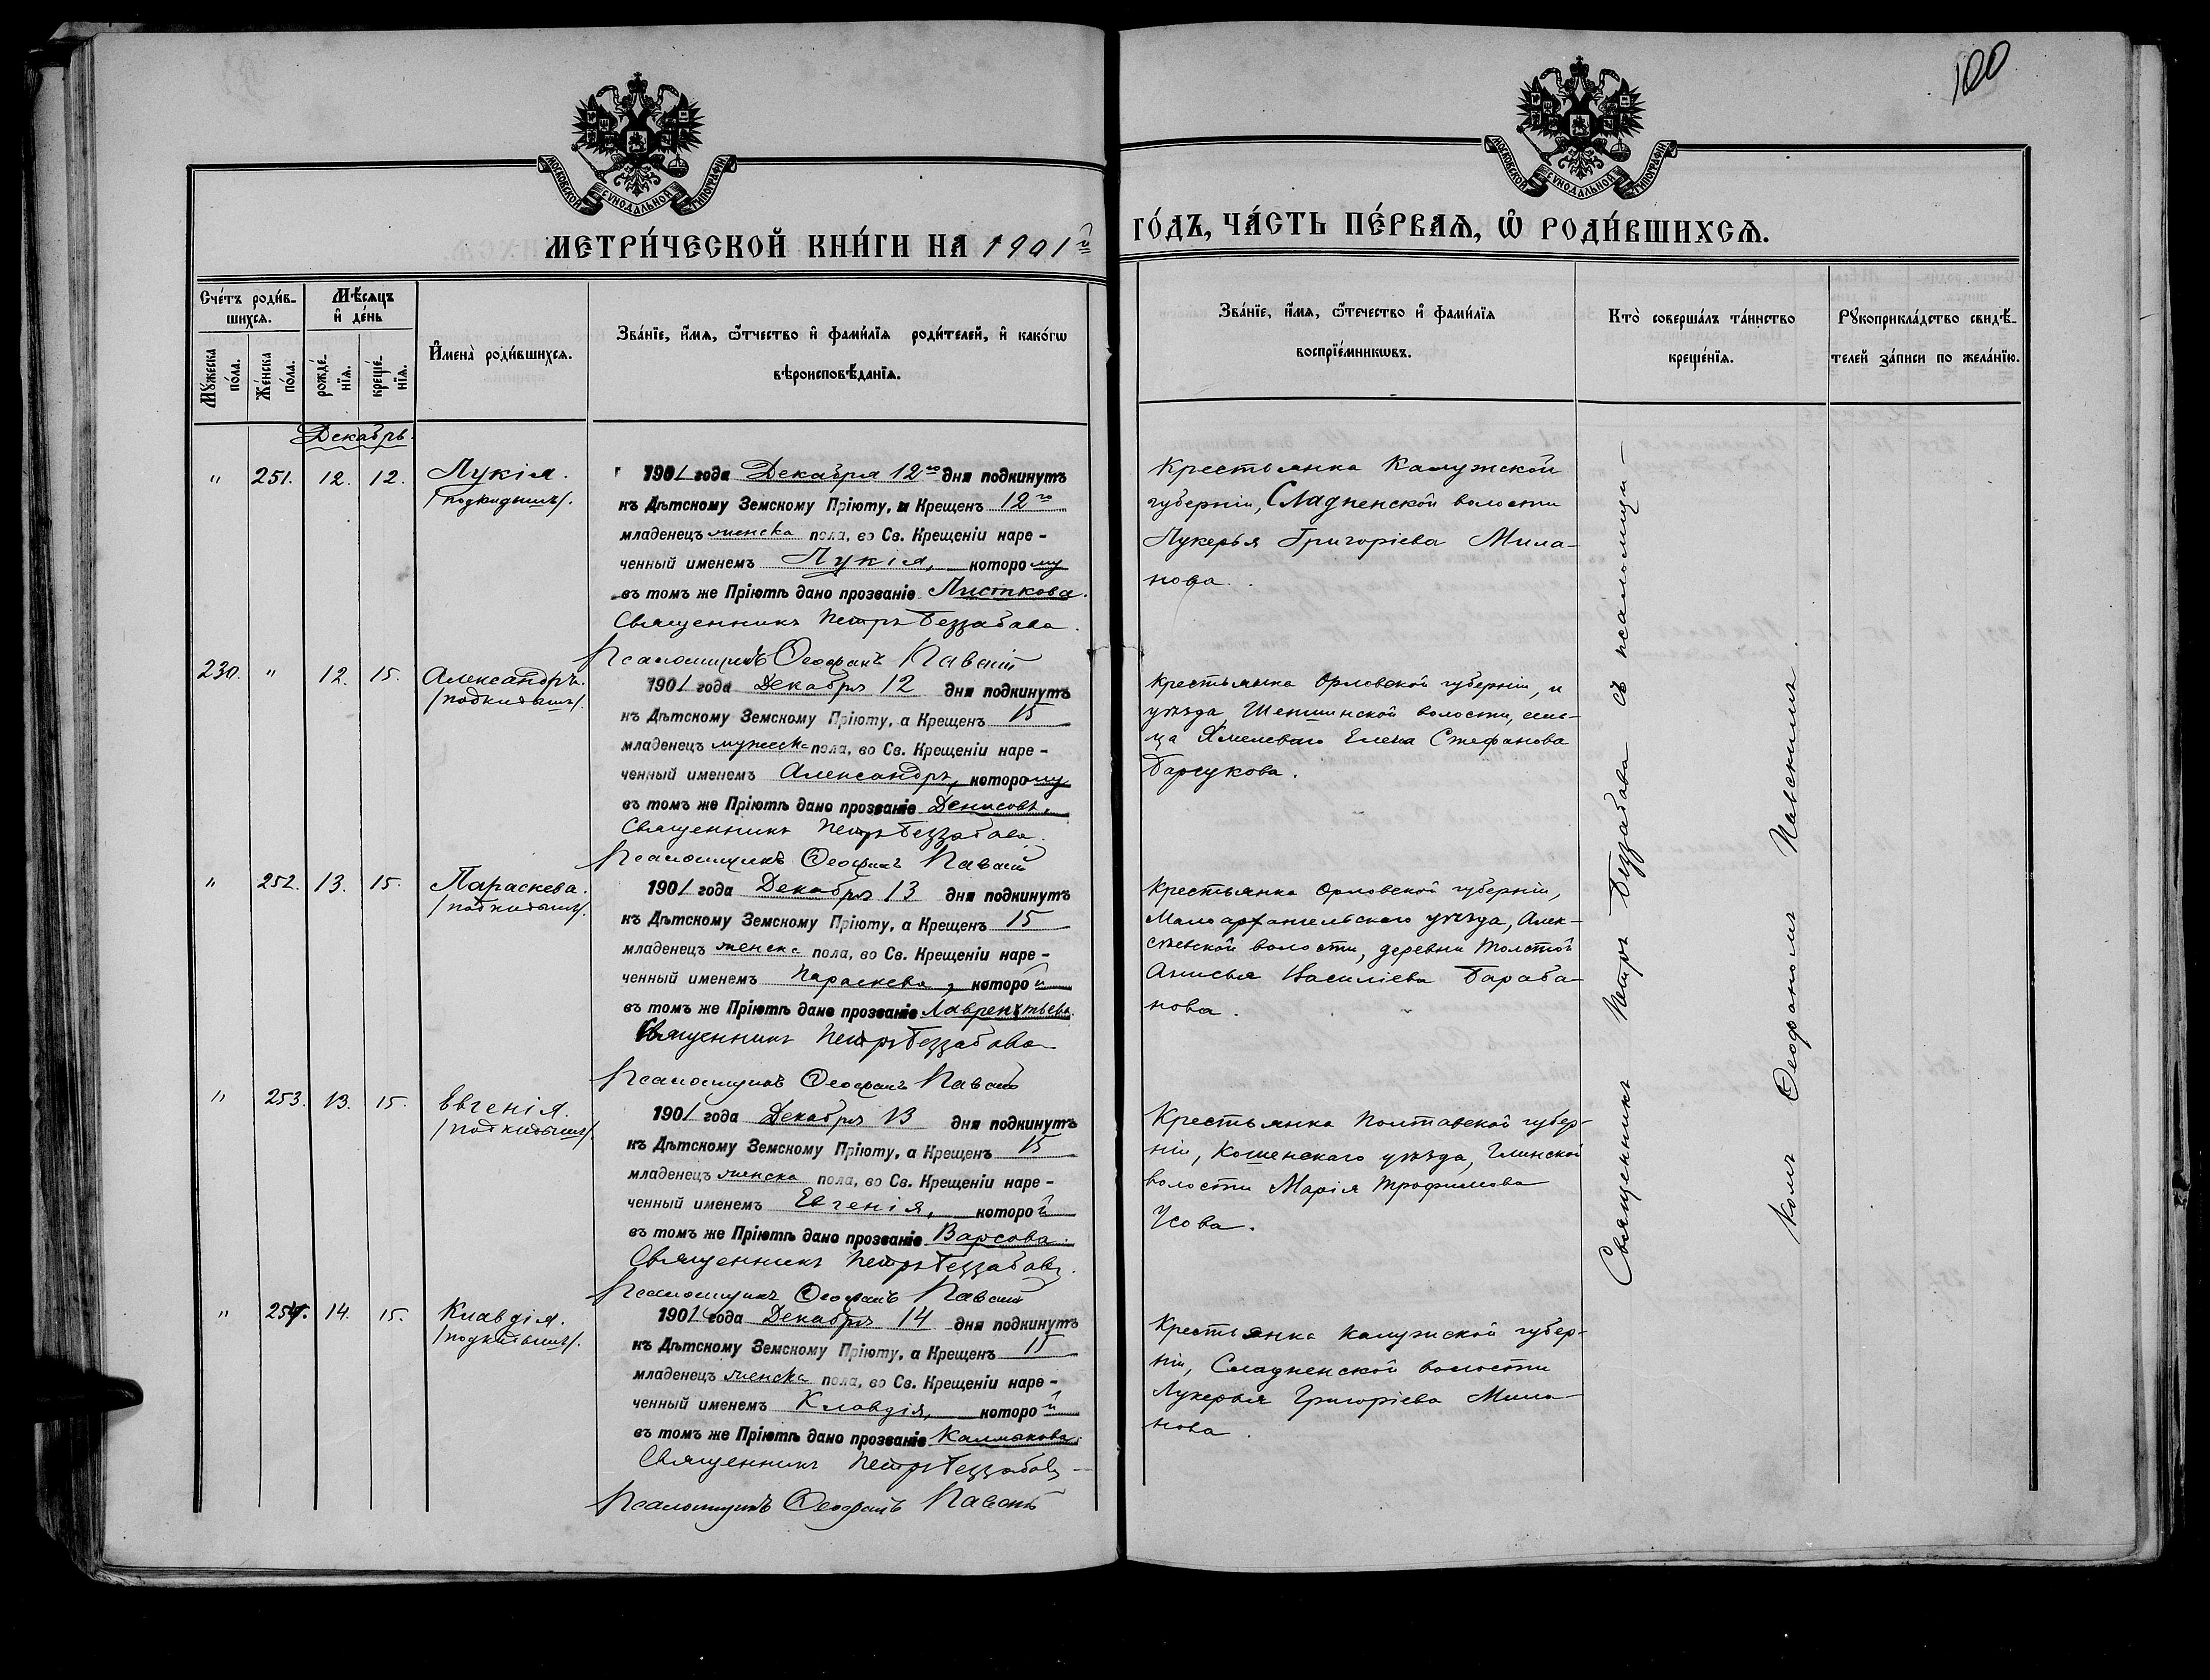 100
МОСКОВСКОЙ СѴНОДАЛЬНОЙ ТИПОГРАФІИ
МОСКОВСКОЙ СѴНОДАЛЬНОЙ ТИПОГРАФІИ
МЕТРИ́ЧЕСКОЙ КНИ́ГИ НА 1901й
ГО́ДЪ, ЧА́СТЬ ПЕ́РВАѦ, Ѽ РОДИ́ВШИХСѦ.
Сче́тъ роди́в-
шихсѧ.
Мꙋ́жеска
по́ла.
Же́нска
по́ла.
Мѣ́сѧцъ
и҆ де́нь
рожде́-
нїѧ.
креще́-
нїѧ.
И҆мена̀ роди́вшихсѧ.
Зва́нїе, и҆́мѧ, ѻ҆́тчество и҆ фами́лїѧ роди́телей, и҆ како́гѡ
вѣроисповѣ́данїѧ.
Зва́нїе, и҆́мѧ, ѻ҆́течество и҆ фами́лїѧ
воспрїе́мникѡвъ.
Кто̀ соверша́лъ та́инство
креще́нїѧ.
Рꙋкоприкла́дство свидѣ́-
телей за́писи по жела́нїю.
Декабрь.
" 251. 12. 12. Лукія.
/подкидышъ/.
1901 года Декабря 12го дня подкинутъ
къ Дѣтскому Земскому Пріюту, и Крещенъ 12го
младенецъ женска пола, во Св. Крещеніи наре-
ченный именемъ Лукія, которому
въ томъ же Пріютѣ дано прозваніе Листкова.
Священникъ Петръ Беззабава.
Псаломщикъ Ѳеофанъ Павскій
Крестьянка Калужской
губерніи, Сладненской волости
Лукерья Григоріева Мила-
нова.
230. " 12. 15. Александръ.
/подкидышъ/.
1901 года Декабря 12 дня подкинутъ
къ Дѣтскому Земскому Пріюту, а Крещенъ 15
младенецъ мужеска пола, во Св. Крещеніи наре-
ченный именемъ Александръ, которому
въ томъ же Пріютѣ дано прозваніе Денисовъ.
Священникъ Петръ Беззабава.
Псаломщикъ Ѳеофанъ Павскій
Крестьянка Орловской губерніи, и
уѣзда, волости, сель-
ца Хмелеваго Елена Стефанова
Барсукова.
" 252. 13. 15. Параскева.
/подкидышъ/.
1901 года Декабря 13 дня подкинутъ
къ Дѣтскому Земскому Пріюту, а Крещенъ 15
младенецъ женска пола, во Св. Крещеніи наре-
ченный именемъ Параскева, которой
въ томъ же Пріютѣ дано прозваніе Лаврентьева.
Священникъ Петръ Беззабава
Псаломщикъ Ѳеофанъ Павскій
Крестьянка Орловской губерніи,
Малоархангельскаго уѣзда, Алек-
сѣевской волости, деревни Толстой
Анисья Василіева Бараба-
нова.
" 253. 13. 15. Евгенія.
/подкидышъ/.
1901 года Декабря 13 дня подкинутъ
къ Дѣтскому Земскому Пріюту, а Крещенъ 15
младенецъ женска пола, во Св. Крещеніи наре-
ченный именемъ Евгенія, которой
въ томъ же Пріютѣ дано прозваніе Варсова.
Священникъ Петръ Беззабава.
Псаломщикъ Ѳеофанъ Павскій
Крестьянка Полтавской губер-
ніи, уѣзда, Глинской
волости Марія Трофимова
Усова.
" 254. 14. 15. Клавдія.
/подкидышъ/.
1901 года Декабря 14 дня подкинутъ
къ Дѣтскому Земскому Пріюту, а Крещенъ 15
младенецъ женска пола, во Св. Крещеніи наре-
ченный именемъ Клавдія, которой
въ томъ же Пріютѣ дано прозваніе Калмыкова.
Священникъ Петръ Беззабава
Псаломщикъ Ѳеофанъ Павскій
Крестьянка Калужской губер-
ніи, Сладненской волости
Лукерья Григоріева Мила-
нова.
Священникъ Петръ Беззабава съ псаломщи-
комъ Ѳеофаномъ Павскимъ.